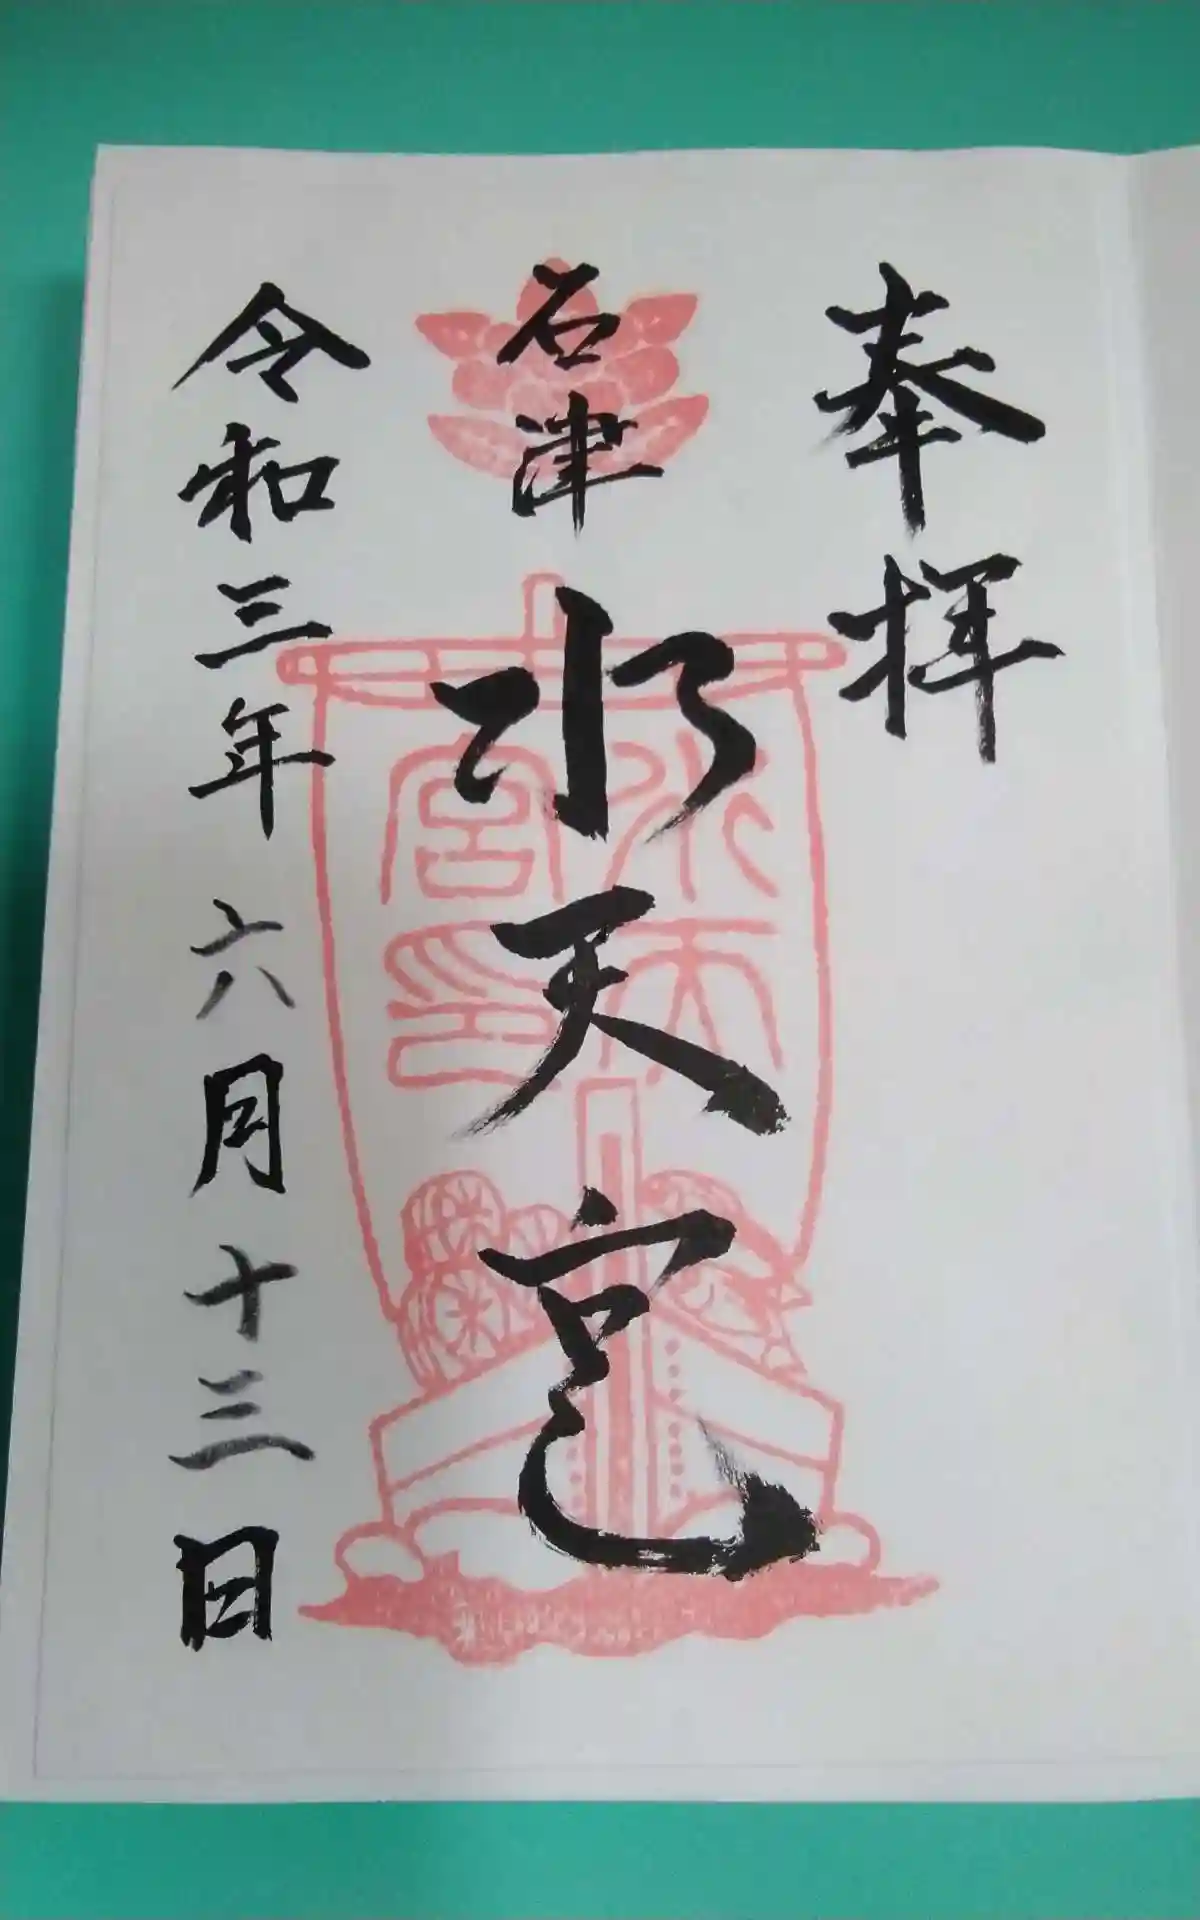 奉拝
石津水天宮
水天宮印
令和三年六月十三日